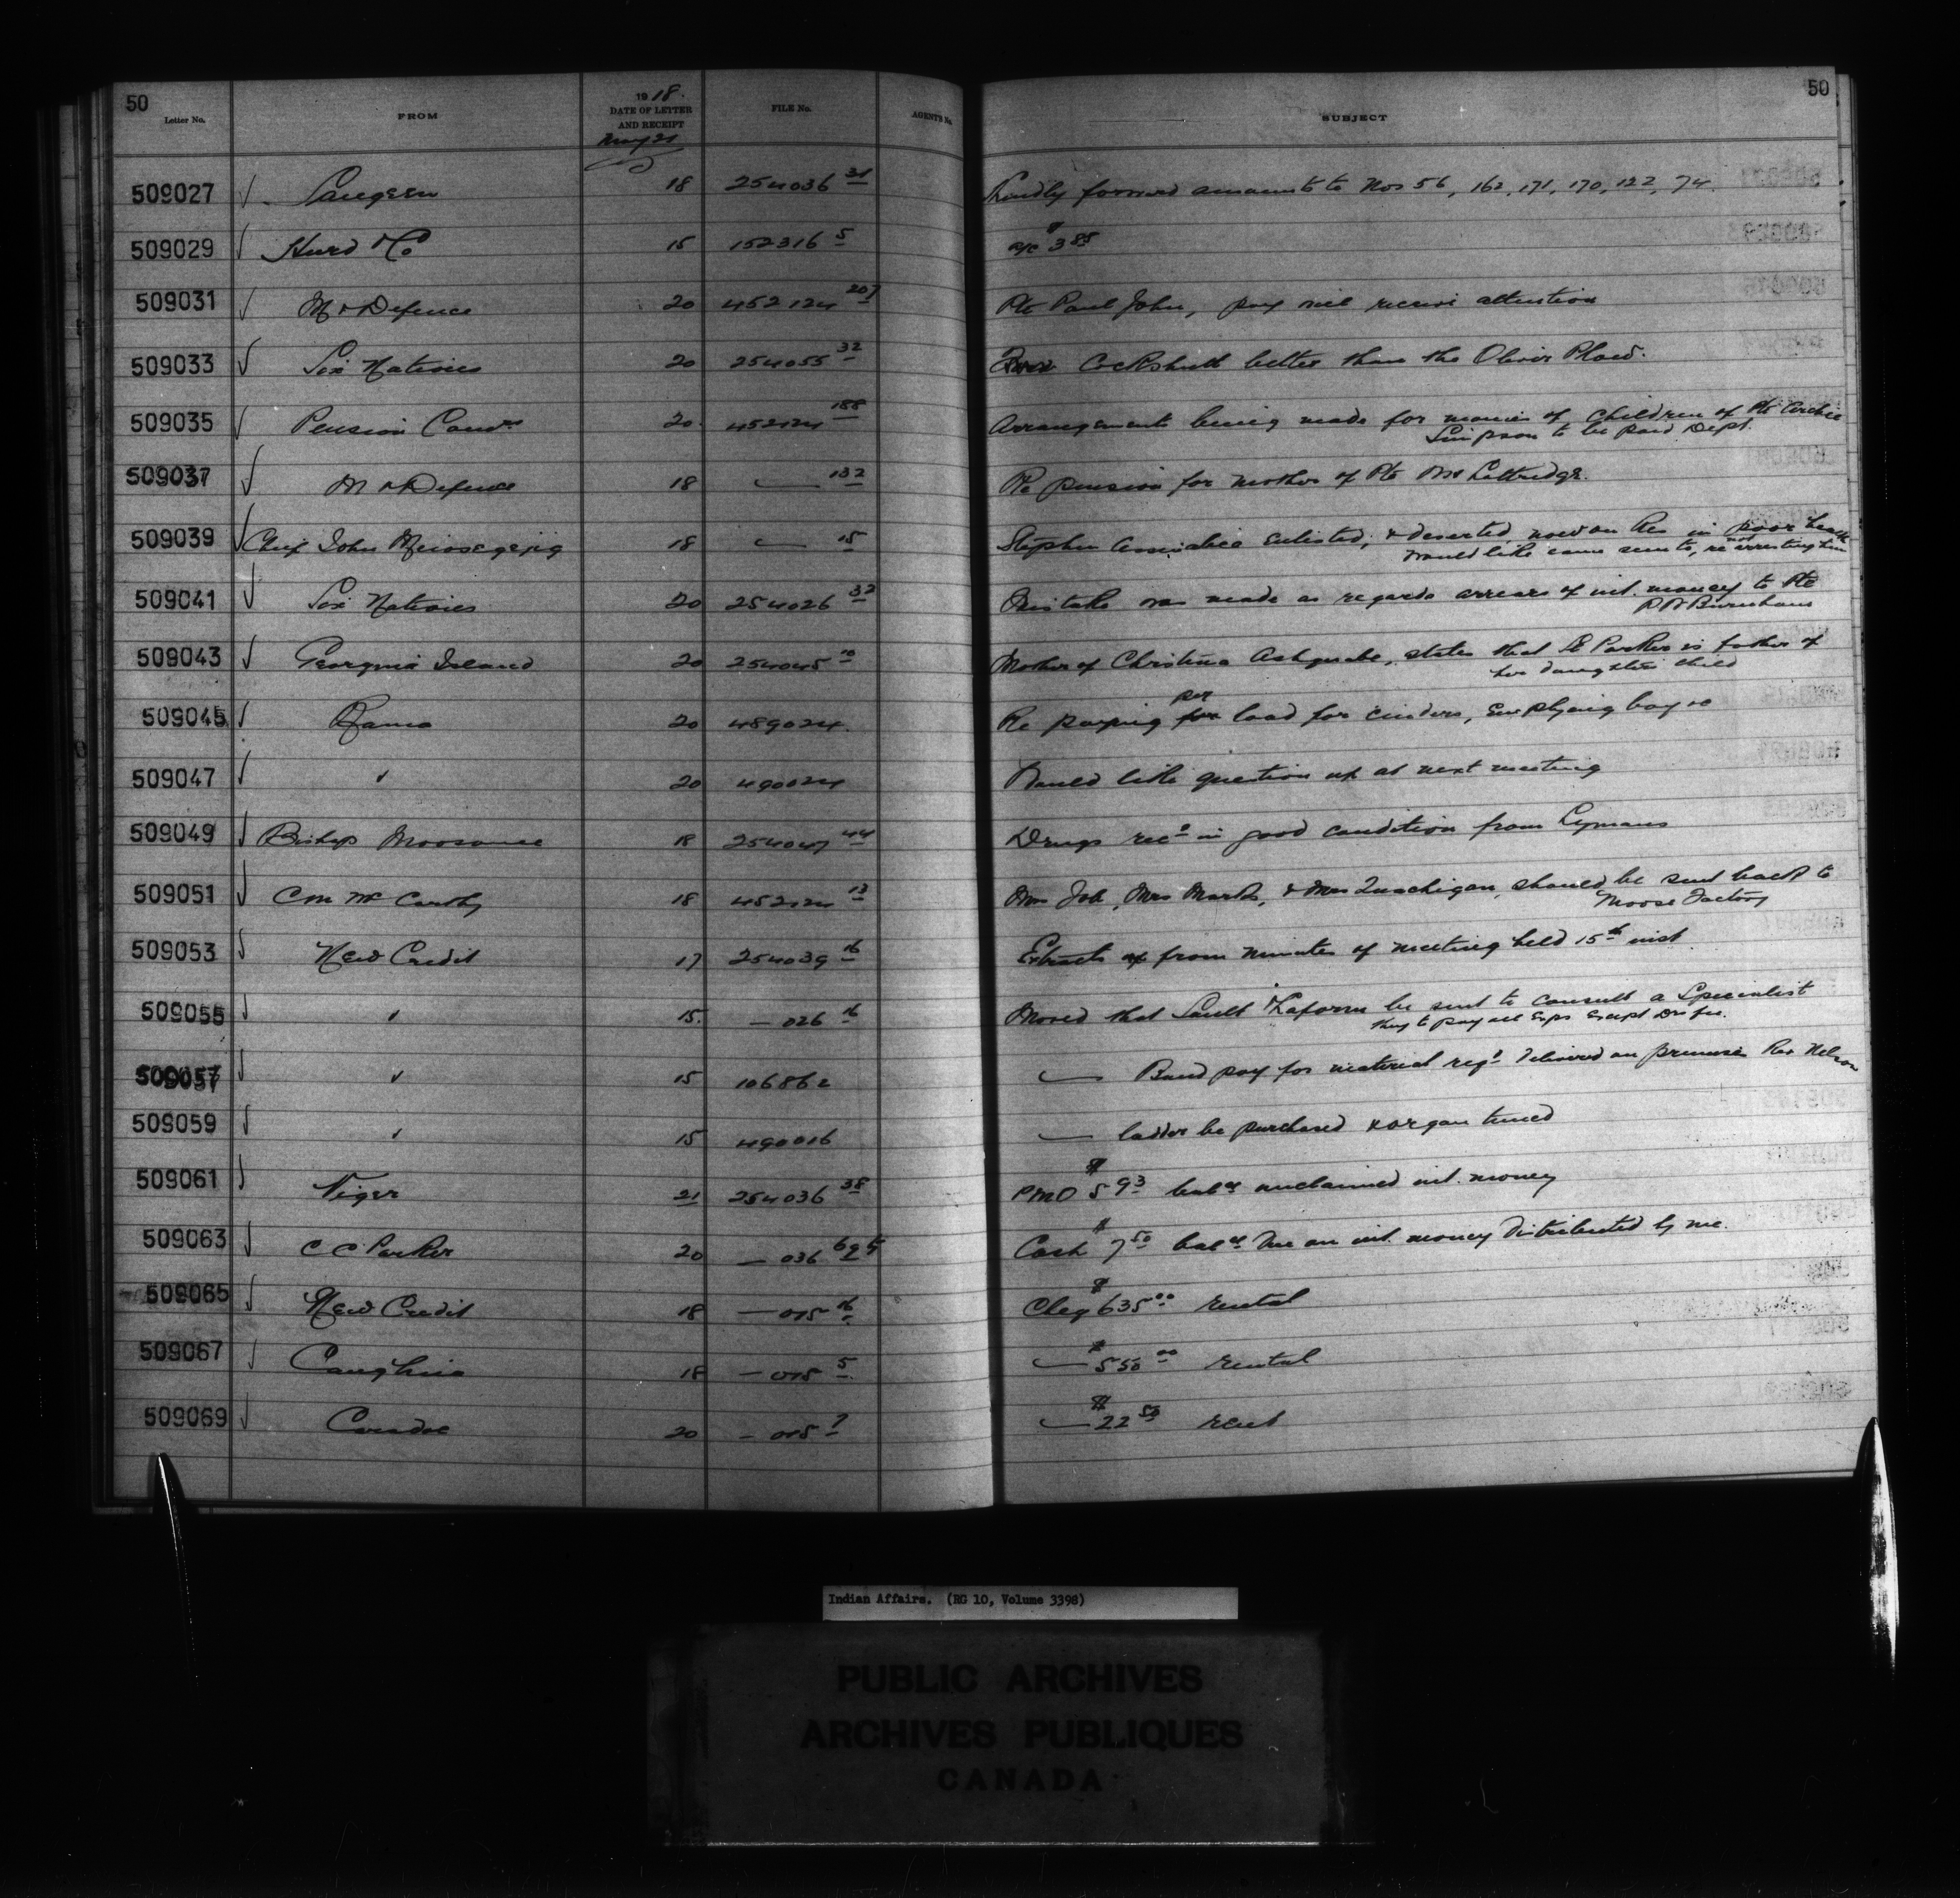 50
50
Letter No. FROM 1918. DATE OF LETTER AND RECEIPT FILE No. AGENT'S No. SUBJECT
May 21
509027 Saugeen 18 254036 31 Kindly forward amounts to Nos 56, 162, 171, 170, 122, 74.
509029 Hurd & Co 15 152316 5 a/c $3 85
509031 M & Defence 20 452124 207 Pte Paul John, pay will receive attention
509033 Six Nations 20 254055 32 Cockshutt better than the Oliver Plow.
509035 Pension Comrs 20. 452124 188 Arrangements being made for monies of children of Pte Archie
Simpson to be paid Dept.
509037 M & Defence 18 — 132 Re pension for mother of Pte Wm Lottridge.
509039 Chief John 18 — 15 Stephen enlisted, & deserted now on Res in poor health
would like some scents, re not arresting him
509041 Six Nations 20 254026 32 Mistake was made as regards arrears of int. money to Pte
Burnham
509043 Georgina Island 20 254045 10 Mother of Christina Ashquabe, states that L Parker is father of
her daughters child
509045 Rama 20 489024. Re paying for per load for cinders, employing boy &c
509047 " 20 490024 Would like question up at next meeting
509049 Bishop Moosonee 18 254047 44 Drugs recd in good condition from Lymans
509051 C M McCarthy 18 452124 13 Mrs Job, Mrs Marks, & Mrs Quachigan, should be sent back to
Moose Factory
509053 New Credit 17 254039 16 Extracts of from minutes of meeting held 15th inst.
509055 " 15. — 026 16 Moved that Sault Laform be sent to consult a Specialist
they to pay all Exps Except Drs fee.
509057 " 15 106862 — Band pay for material reqd delivered on premises Rev Nelson
509059 " 15 490016 — ladder be purchased & organ tuned
509061 Niger 21 254036 38 PMO $5 93 balce unclaimed int. money
509063 C C Parker 20 — 036 69 5 Cash $7 50 balce due on int. money distributed by me.
509065 New Credit 18 — 015 16 Cheq $635 00 rental
509067 Caughna 18 — 015 5. — $550 00 rental
509069 Caradoc 20 — 015 7 — $22 50 rent
Indian Affairs. (RG 10, Volume 3398)
PUBLIC ARCHIVES
ARCHIVES PUBLIQUES
CANADA